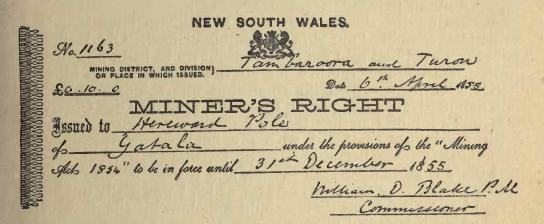 NEW SOUTH WALES.
No. 1163
MINING DISTRICT, AND DIVISION}
OR PLACE IN WHICH ISSUED.
Tambaroora and Turon
£0.10.0 Date 6th April 1855
MINER'S RIGHT
Issued to Hereward Pole
of Gatala under the provisions of the "Mining
Act 1854" to be in force until 31st December 1855
William O. Blake P.M
Commissioner